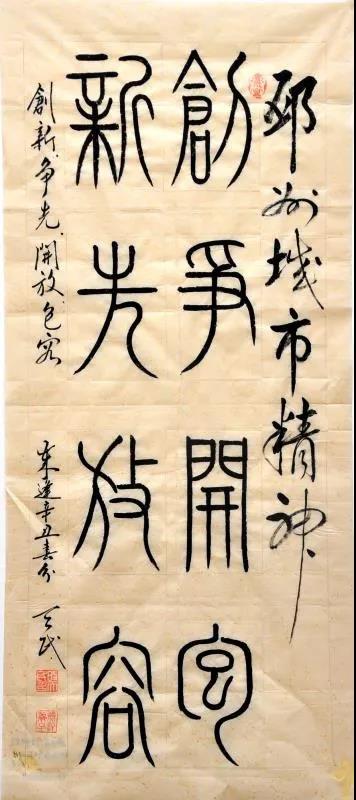 邳州城市精神
創新
爭先
開放
包容
創新、争先、開放、包容
辛丑春分